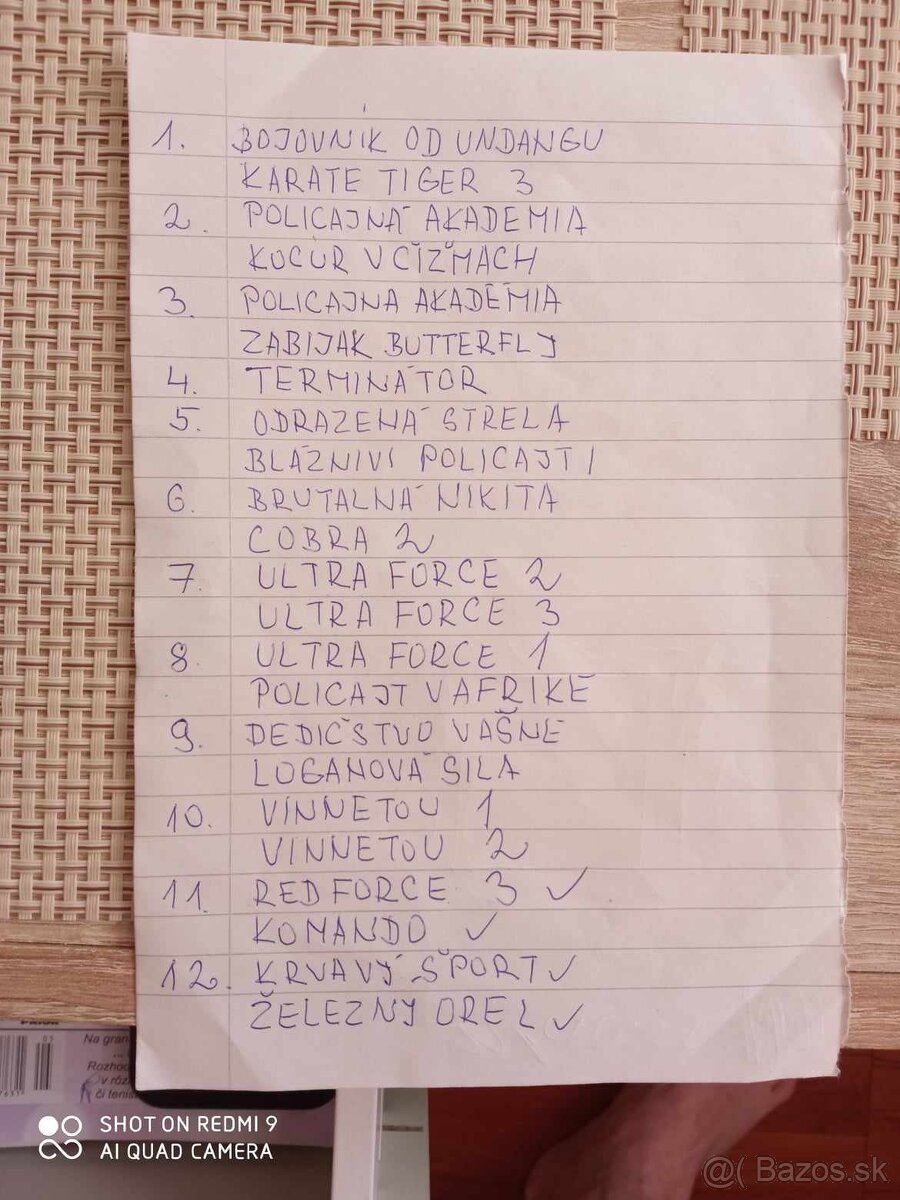 1. BOJOVNIK OD UNDANGU
KARATE TIGER 3
2. POLICAJNÁ AKADEMIA
KOCÚR V CIŽMACH
3. POLICAJNA AKADÉMIA
ZABIJAK BUTTERFLY
4. TERMINÁTOR
5. ODRAZENÁ STRELA
BLÁZNIVÍ POLICAJTI
6. BRUTALNÁ NIKITA
COBRA 2
7. ULTRA FORCE 2
ULTRA FORCE 3
8. ULTRA FORCE 1
POLICAJT V AFRIKE
9. DEDIČSTVO VAŠNE
LOGANOVÁ SILA
10. VINNETOU 1
VINNETOU 2
11. RED FORCE 3 ✓
KOMANDO ✓
12. KRVAVÝ ŠPORT ✓
ŽELEZNY OREL ✓
Na gran
...
Rozhod
v rôz
či tenis
SHOT ON REDMI 9
AI QUAD CAMERA
@( Bazos.sk